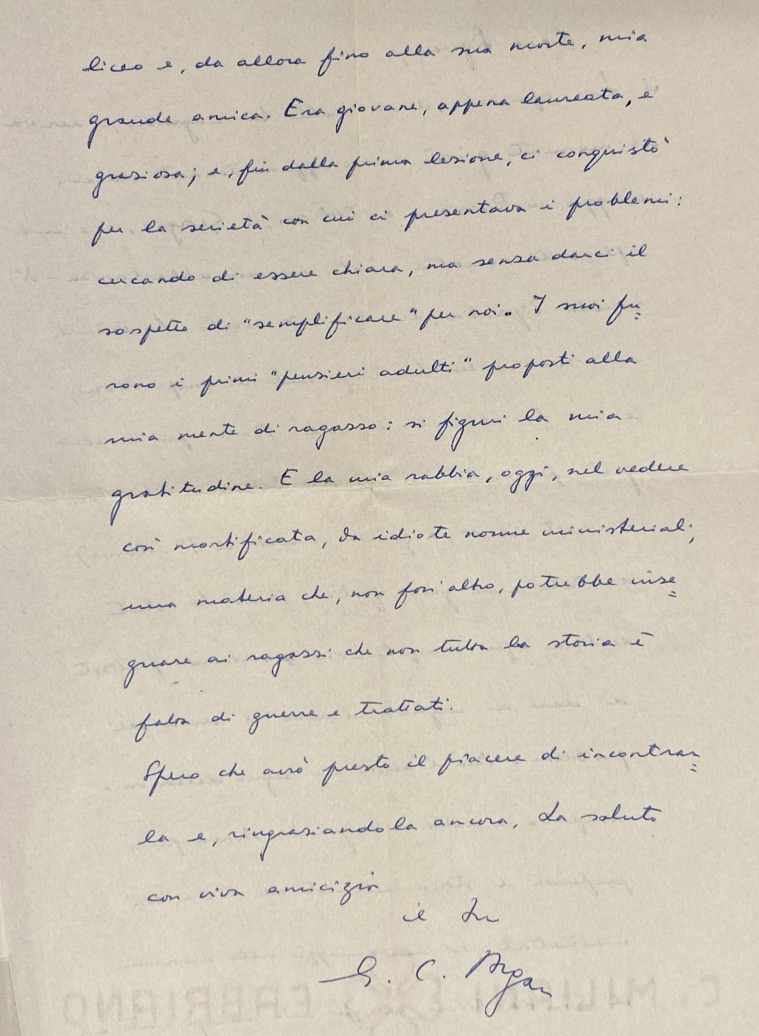 liceo e, da allora fino alla sua morte, mia
grande amica. Era giovane, appena laureata, e
graziosa; e, fin dalla prima lezione, ci conquistò
per la serietà con cui ci presentava i problemi:
cercando di essere chiara, ma senza darci il
sospetto di "semplificare" per noi. I suoi fu=
rono i primi "pensieri adulti" proposti alla
mia mente di ragazzo: si figuri la mia
gratitudine. E la mia rabbia, oggi, nel vedere
così mortificata, da idiote norme ministeriali,
una materia che, non foss'altro, potrebbe inse=
gnare ai ragazzi che non tutta la storia è
fatta di guerre e trattati.
Spero che avrò presto il piacere di incontrar=
la e, ringraziandola ancora, La saluto
con viva amicizia
il Suo
G. C. Argan
C. MILIANI FABRIANO